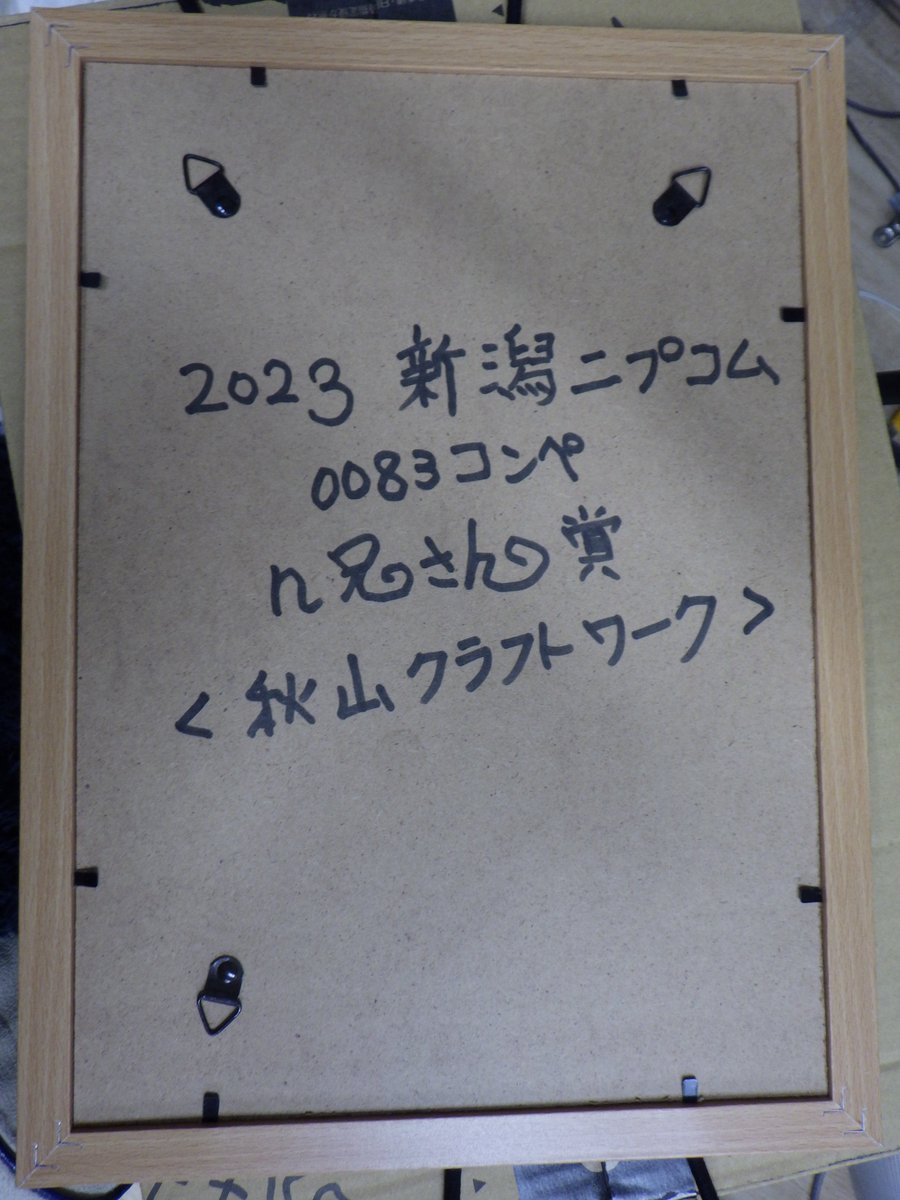 2023 新潟ニプコム
0083コンペ
n兄さん賞
<秋山クラフトワーク>